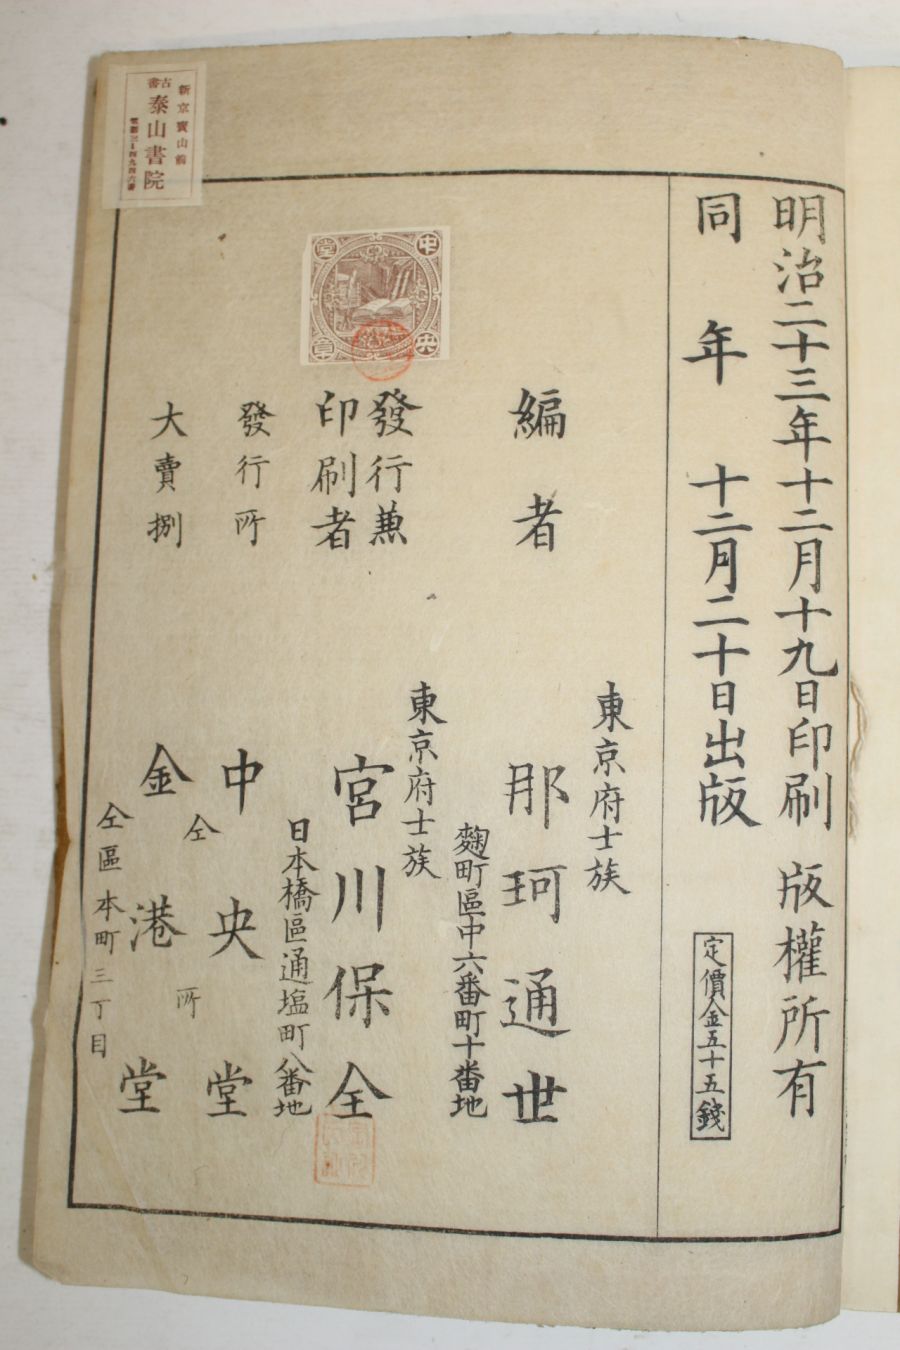 明治二十三年十二月十九日印刷 版權所有
同 年 十二月二十日出版 定價金五十五錢
東京府士族
編者 那珂通世
麴町區中六番町十番地
東京府士族
發行兼
印刷者 宮川保全
日本橋區通塩町八番地
發行所 中央堂
仝 所
大賣捌 金港堂
仝區本町三丁目
中央堂章
新京寶山前
古書
泰山書院